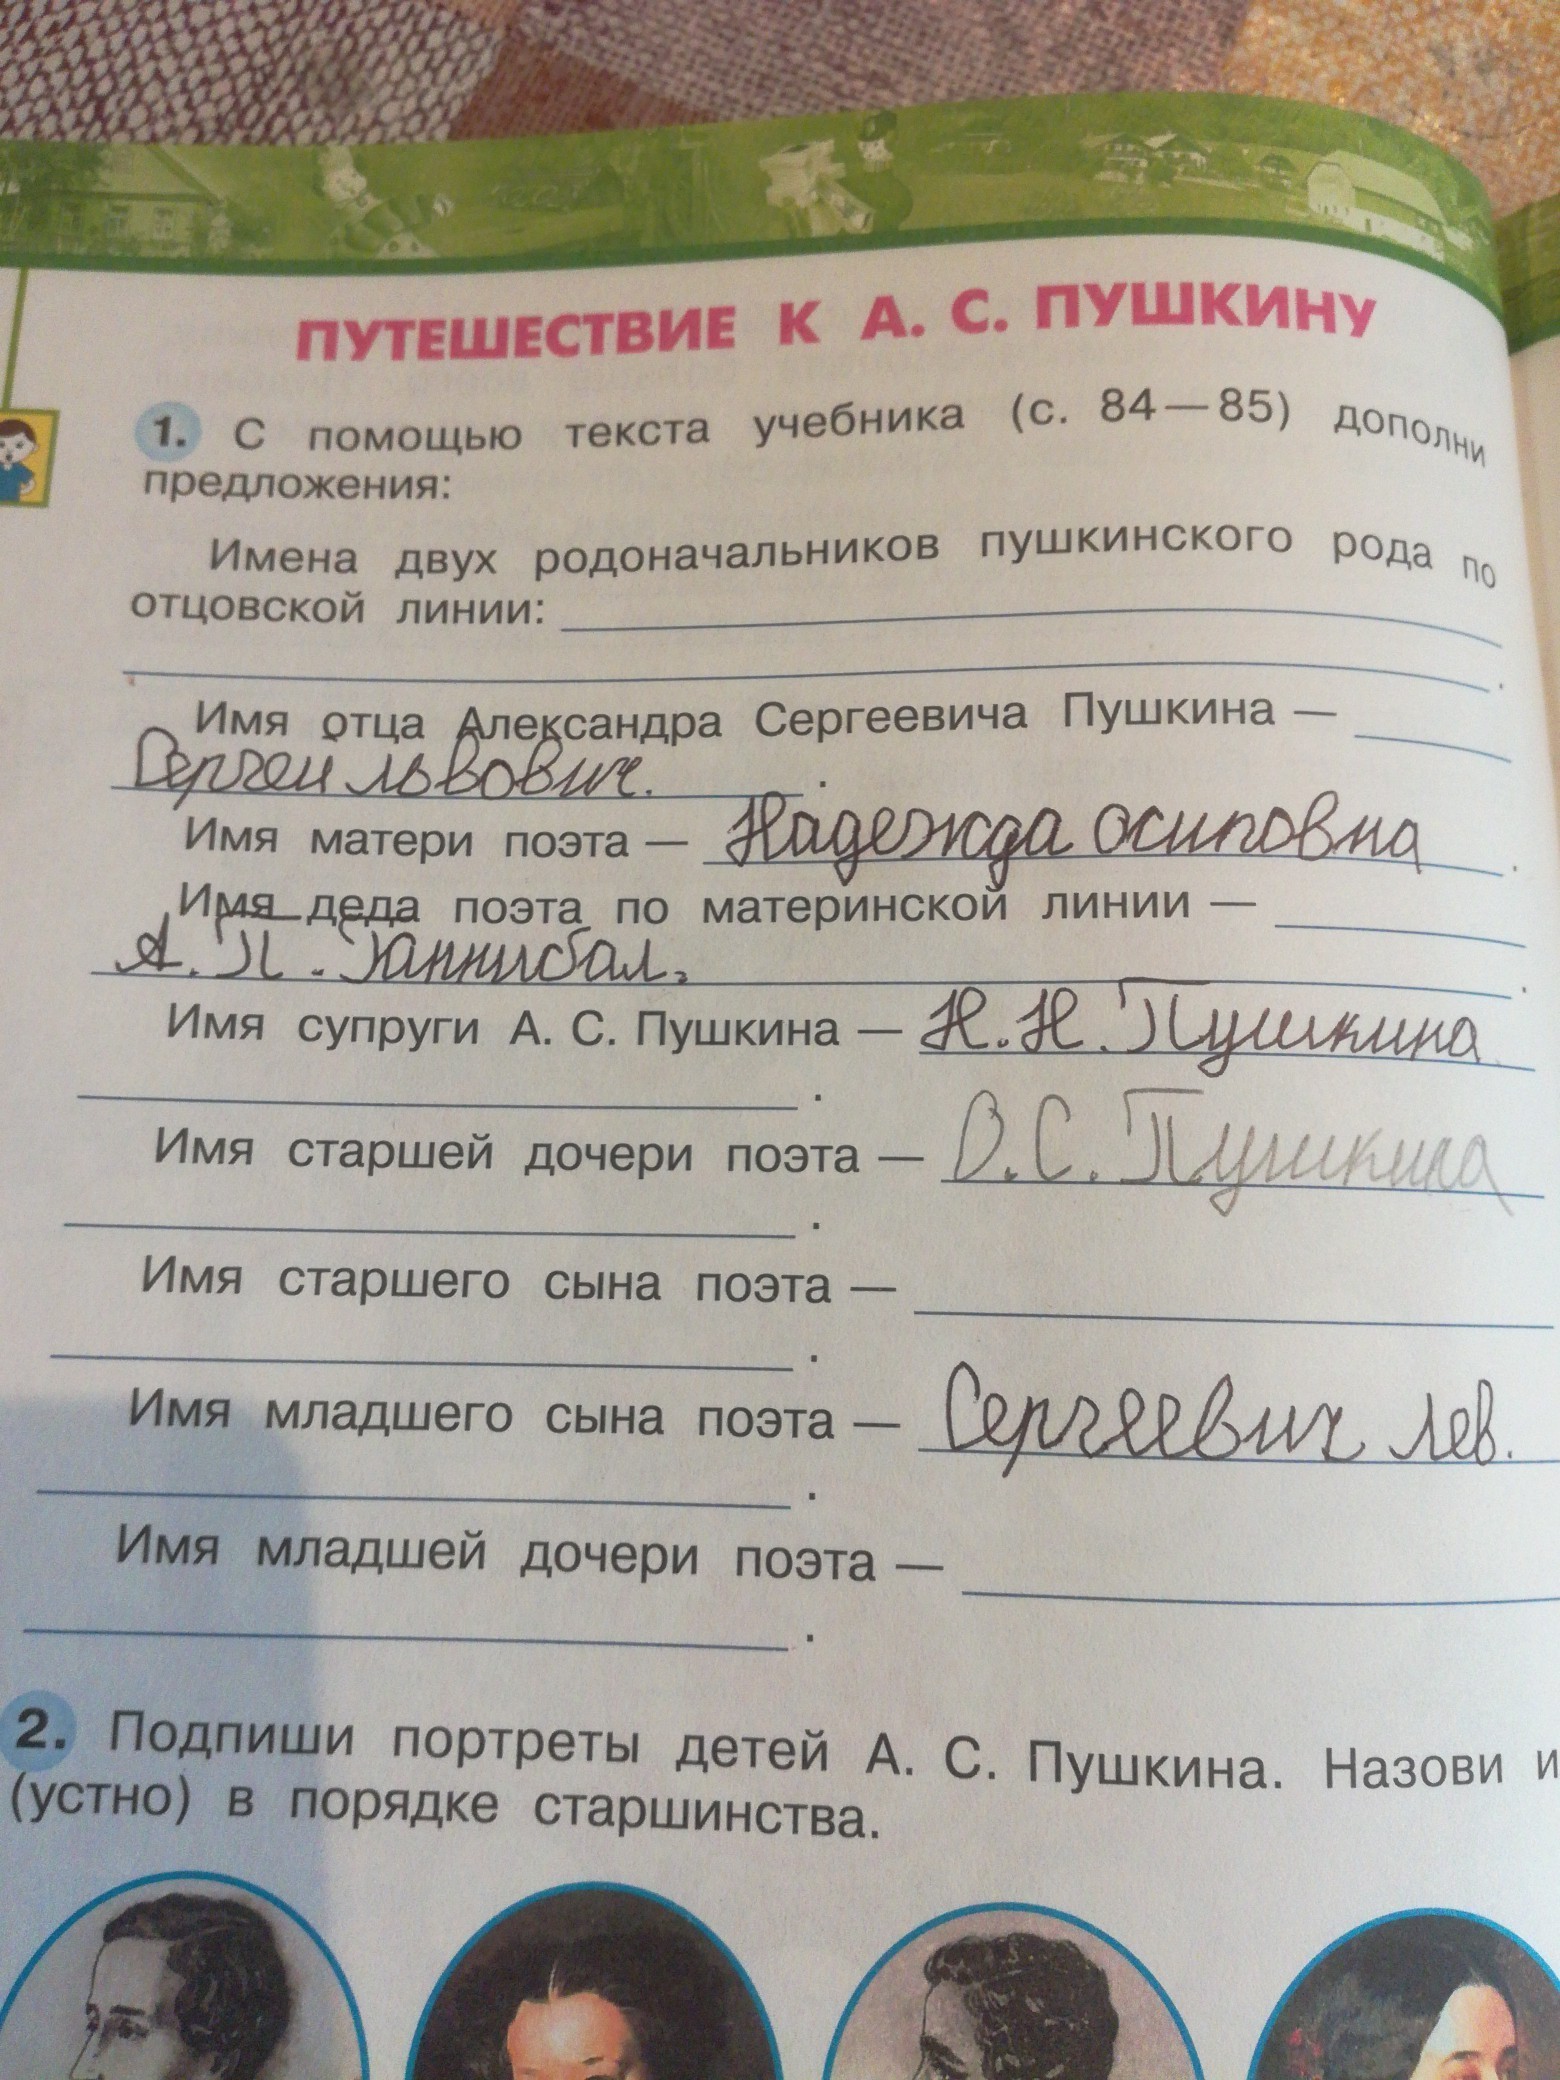 ПУТЕШЕСТВИЕ К А. С. ПУШКИНУ
1. С помощью текста учебника (с. 84—85) дополни
предложения:
Имена двух родоначальников пушкинского рода по
отцовской линии:
.
Имя отца Александра Сергеевича Пушкина —
Сергей львович. .
Имя матери поэта — Надежда осиповна .
Имя деда поэта по материнской линии —
А. П. Ганнибал. .
Имя супруги А. С. Пушкина — Н. Н. Пушкина
.
Имя старшей дочери поэта — О. С. Пушкина
.
Имя старшего сына поэта —
.
Имя младшего сына поэта — Сергеевич лев.
.
Имя младшей дочери поэта —
.
2. Подпиши портреты детей А. С. Пушкина. Назови и
(устно) в порядке старшинства.